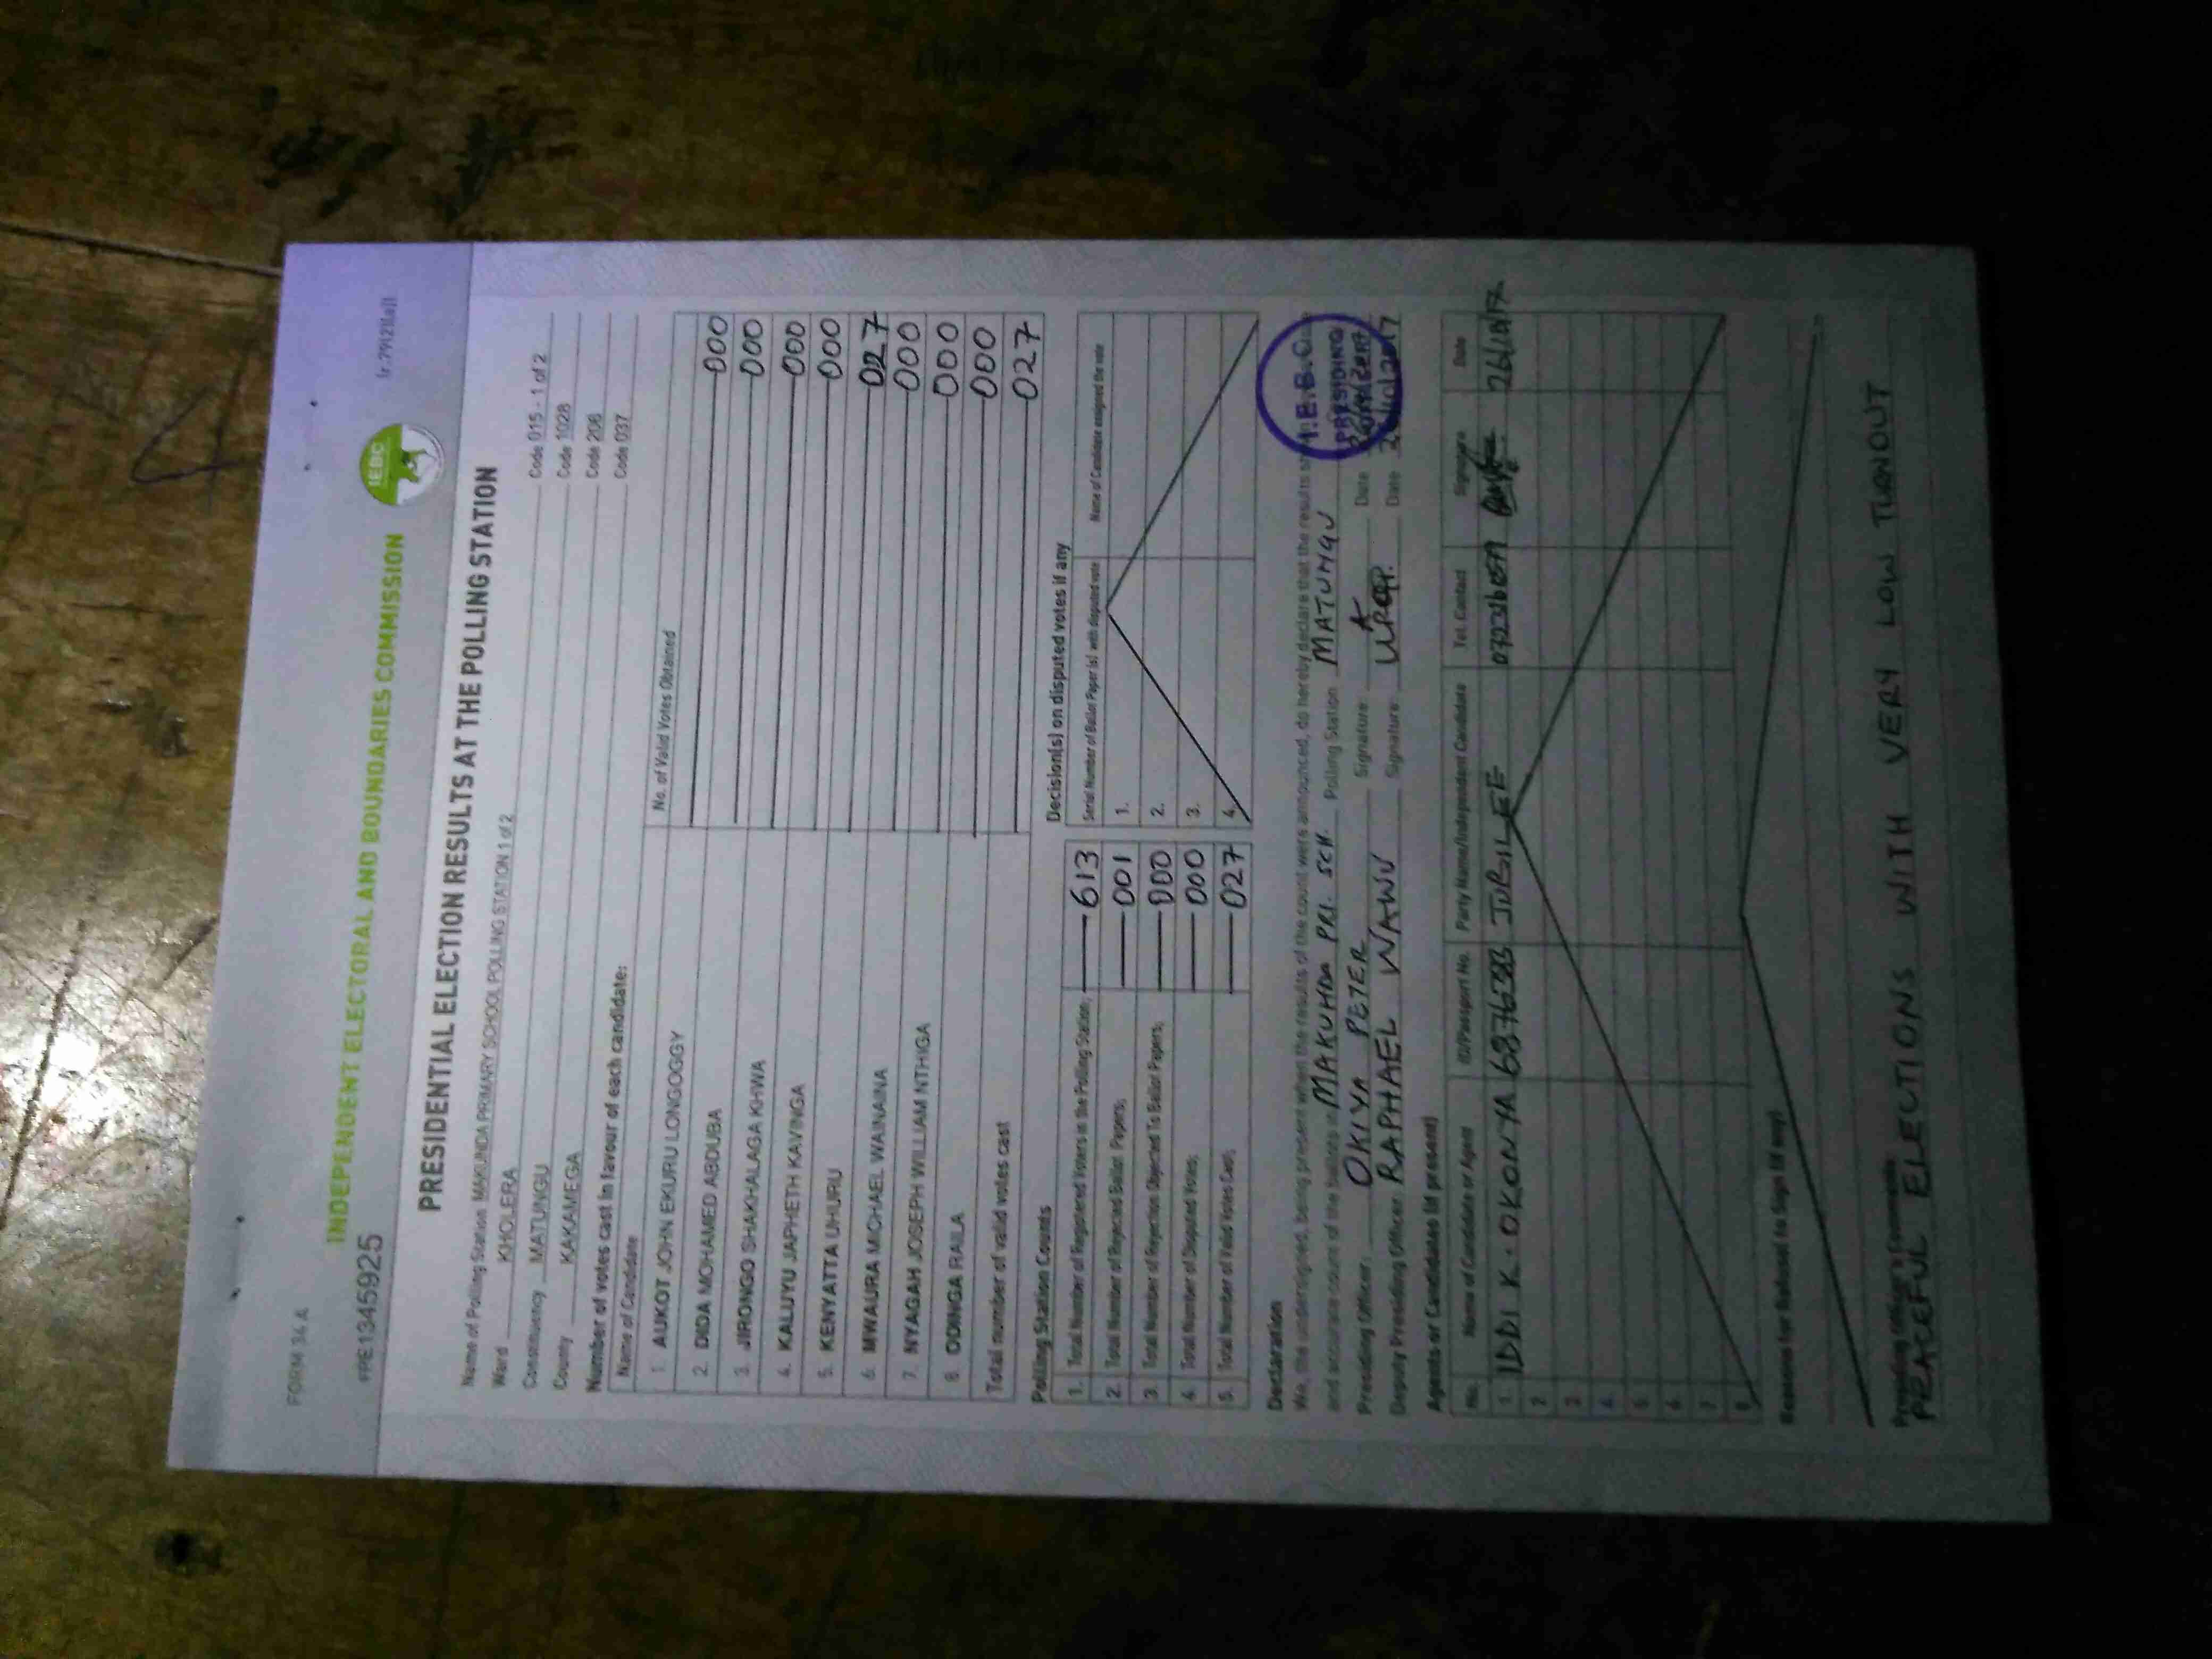 FORM 34 A
(r.79(2)(a))
INDEPENDENT ELECTORAL AND BOUNDARIES COMMISSION
IEBC
PRESIDENTIAL ELECTION RESULTS AT THE POLLING STATION
Name of Polling Station MAKUNDA PRIMARY SCHOOL POLLING STATION 1 of 2 Code 015 - 1 of 2
Ward KHOLERA Code 1028
Constituency MATUNGU Code 206
County KAKAMEGA Code 037
Number of votes cast in favour of each candidate:
Name of Candidate No. of Valid Votes Obtained
1. AUKOT JOHN EKURU LONGOGGY 000
2. DIDA MOHAMED ABDUBA 000
3. JIRONGO SHAKHALAGA KHWA 000
4. KALUYU JAPHETH KAVINGA 000
5. KENYATTA UHURU 027
6. MWAURA MICHAEL WAINAINA 000
7. NYAGAH JOSEPH WILLIAM NTHIGA 000
8. ODINGA RAILA 000
Total number of valid votes cast 027
Polling Station Counts
1. Total Number of Registered Voters in the Polling Station; 613
2. Total Number of Rejected Ballot Papers; 001
3. Total Number of Rejection Objected To Ballot Papers; 000
4. Total Number of Disputed Votes; 000
5. Total Number of Valid Votes Cast; 027
Decision(s) on disputed votes if any
Serial Number of Ballot Paper (s) with disputed vote Name of Candidate assigned the vote
1.
2.
3.
4.
Declaration
We, the undersigned, being present when the results of the count were announced, do hereby declare that the results
and accurate count of the ballots in MAKUNDA PRI. SCH. Polling Station MATUNGU
Presiding Officer: OKIYA PETER Signature: Date
Deputy Presiding Officer: RAPHAEL WAWU Signature: Date
I.E.B.C.
PRESIDING
Agents or Candidate (if present)
No. Name of Candidate or Agent ID/Passport No. Party Name/Independent Candidate Tel. Contact Signature Date
1 IDDI K. OKONYA JUBILEE 26/10/17
2
3
4
5
6
7
8
Reasons for Refusal to Sign (if any)
PEACEFUL ELECTIONS WITH VERY LOW TURNOUT